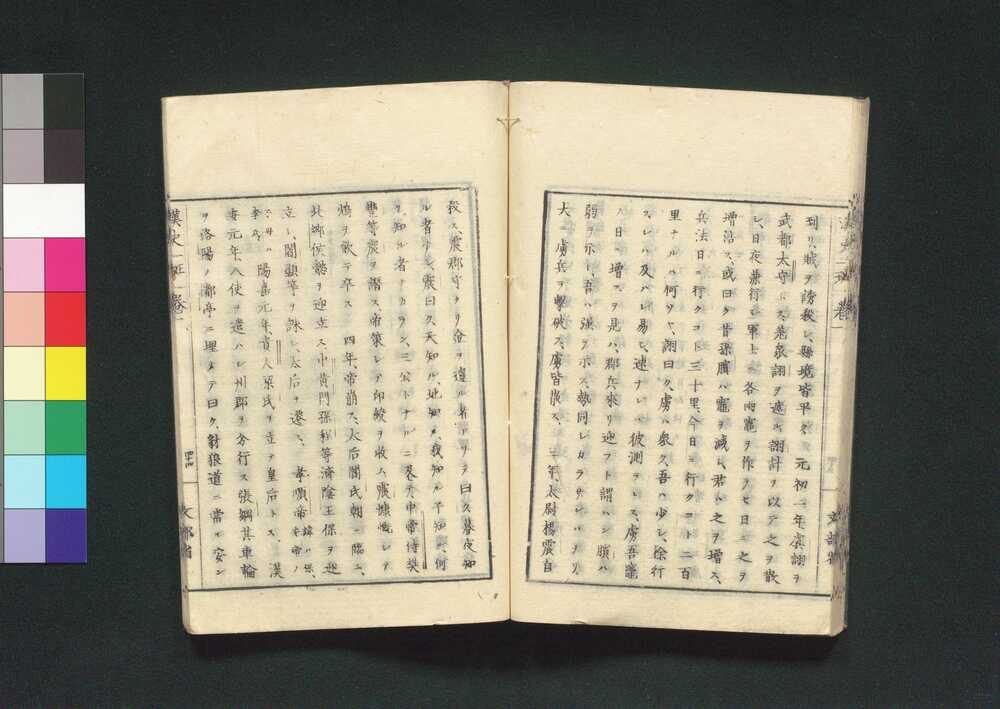 到リ、賊ヲ誘殺シ、縣境皆平ク、元初二年、虞詡ヲ
武都太守トス、羌衆詡ヲ遮ル、詡計ヲ以テ之ヲ散
シ、日夜兼行シ、軍士ニ各両竈ヲ作ラセ日ニ之ヲ
増倍ス、或曰ク昔孫臏ハ竈ヲ減シ、君ハ之ヲ増ス、
兵法日ニ行クコト三十里、今日ニ行クコト二百
里ナルハ何ソヤ、詡曰ク、虜ハ衆ク、吾ハ少シ、徐行
スレハ及ハレ易シ、速ナレハ彼測ラサルス、虜吾竈
ノ日ニ増スヲ見ハ、郡兵来リ迎フト謂ハン、臏ハ
弱ヲ示シ、吾ハ強ヲ示ス、勢同シカラサレハナリ、
大ニ虜兵ヲ撃破ス、虜皆散ス、三年、太尉楊震自
殺ス、震郡守タリ、金ヲ遺ル者アリ、曰ク、暮夜知
ル者ナシ、震曰ク、天知ル、地知ル、我知ル、子知ル、何
ソ知ル者ナカラン、三公トナルニ及テ、中常侍樊
豐等震ヲ譖ス、帝策シテ印綬ヲ收ム、震慷慨シテ
鴆ヲ飲テ卒ス 四年、帝崩ス、太后閻氏朝ニ臨ミ、
北郷侯懿ヲ迎立ス、中黄門孫程等濟陰王保ヲ迎
立シ、閻顯等ヲ誅シ、太后ヲ遷ス、孝順帝諱ハ保、
安帝ノ子、母ハ李氏、陽嘉元年、貴人梁氏ヲ立テ皇后トス、漢
安元年、八使ヲ遣ハシ州郡ヲ分行ス、張綱其車輪
ヲ洛陽ノ都亭ニ埋メテ曰ク、豺狼道ニ當ル、安ン
漢史一班 卷一
四十四
文部省